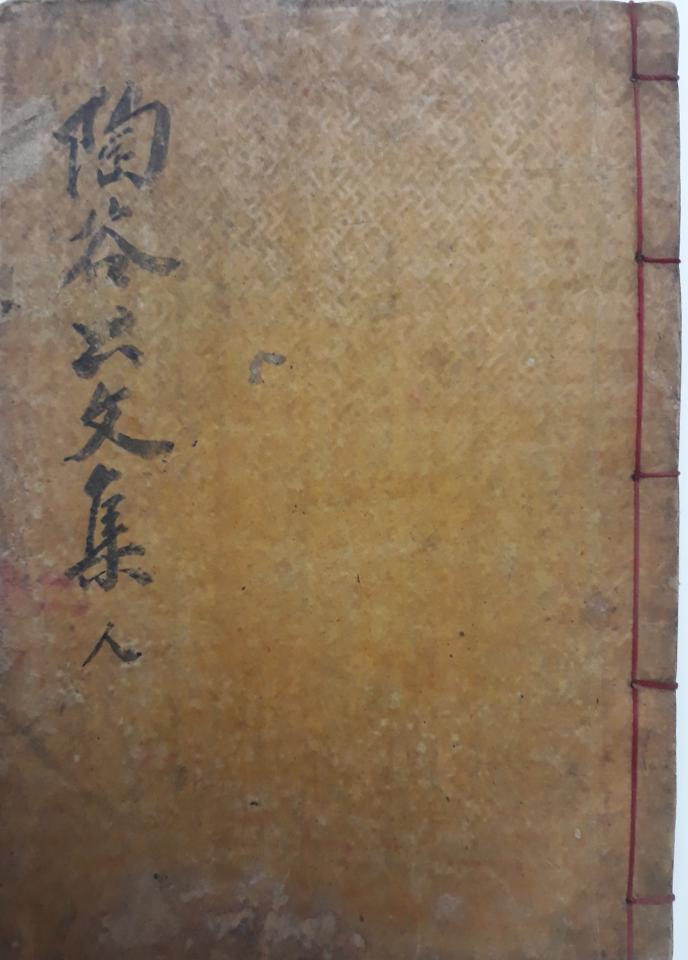 陶谷公文集 人